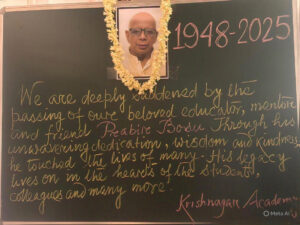 1948-2025
We are deeply saddened by the
passing of our beloved educator, mentor
and friend Prabir Bosu Through his
unwavering dedication, wisdom and kindness
he touched the lives of many. His legacy
lives on in the hearts of the students,
colleagues and many more.
Krishnagar Academy
Meta AI